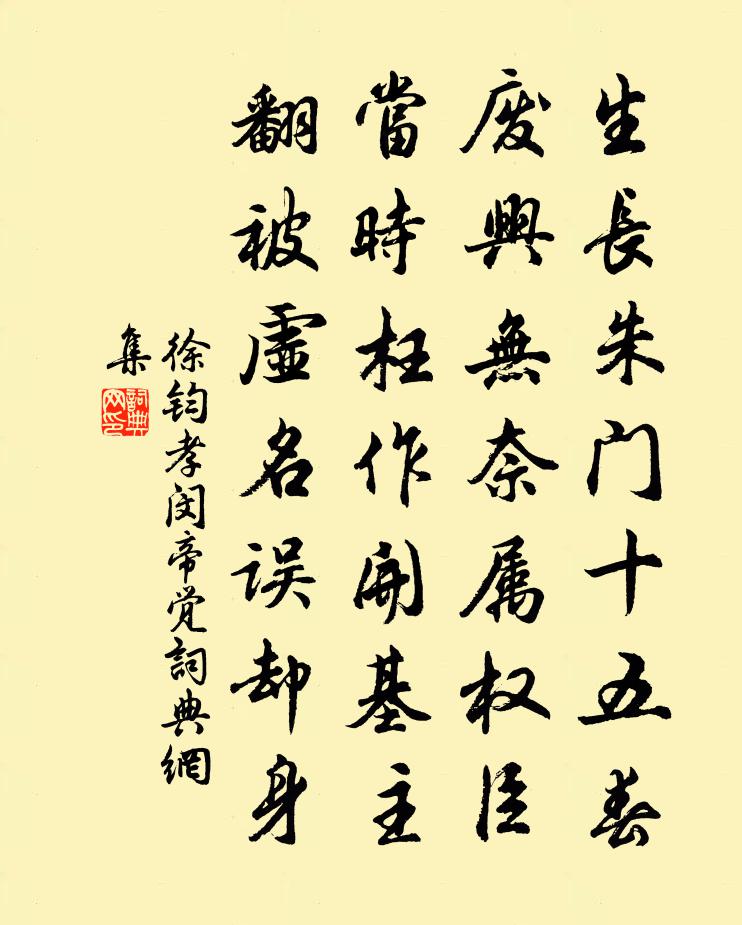 生長朱门十五春
废興無奈属权臣
當時枉作開基主
翻被虚名误却身
徐钧孝闵帝觉詞典網
集
詞典网印